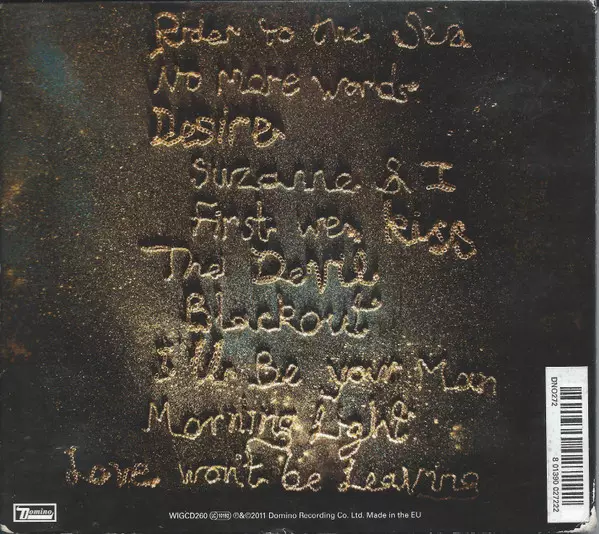 Rider to the Sea
No More Words
Desire
Suzanne & I
First we kiss
The Devil
Blackout
I'll Be your Man
Morning Light
Love won't be Leaving
DNO272
8 01390 027222
Domino
WIGCD260 LC 10192 ℗&©2011 Domino Recording Co. Ltd. Made in the EU